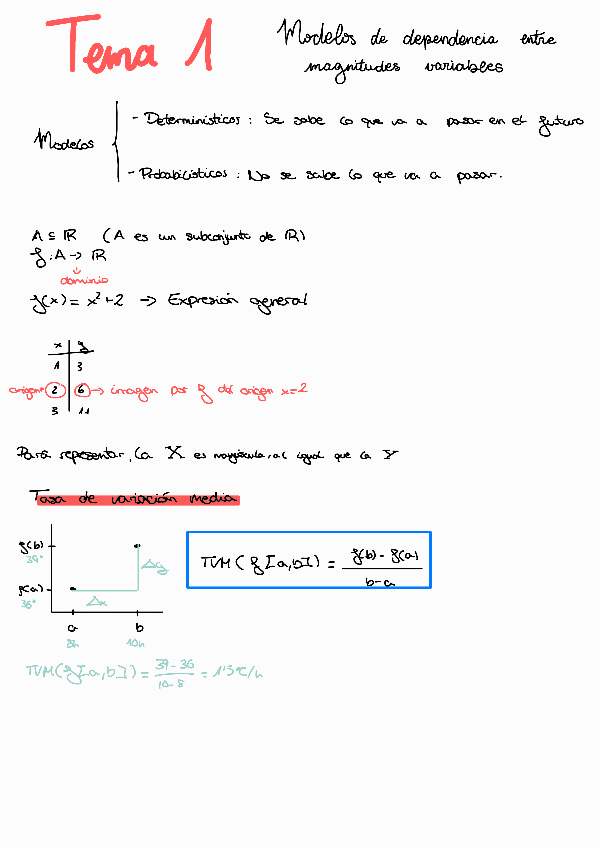 Tema 1
Modelos de dependencia entre
magnitudes variables
Modelos
- Determinísticos: Se sabe lo que va a pasar en el futuro
- Probabilísticos: No se sabe lo que va a pasar.
A ⊆ ℝ (A es un subconjunto de ℝ)
f: A → ℝ
↓
dominio
f(x) = x² + 2 → Expresión general
x y
1 3
origen 2 6 → imagen por f del origen x=2
3 11
Para representar, la X es mayúscula, al igual que la Y
Tasa de variación media
f(b)
39°
f(a)
36°
Δy
Δx
a b
8h 10h
TVM(f[a,b]) = f(b) - f(a) / b-a
TVM(f[a,b]) = 39-36 / 10-8 = 1'5°C/h